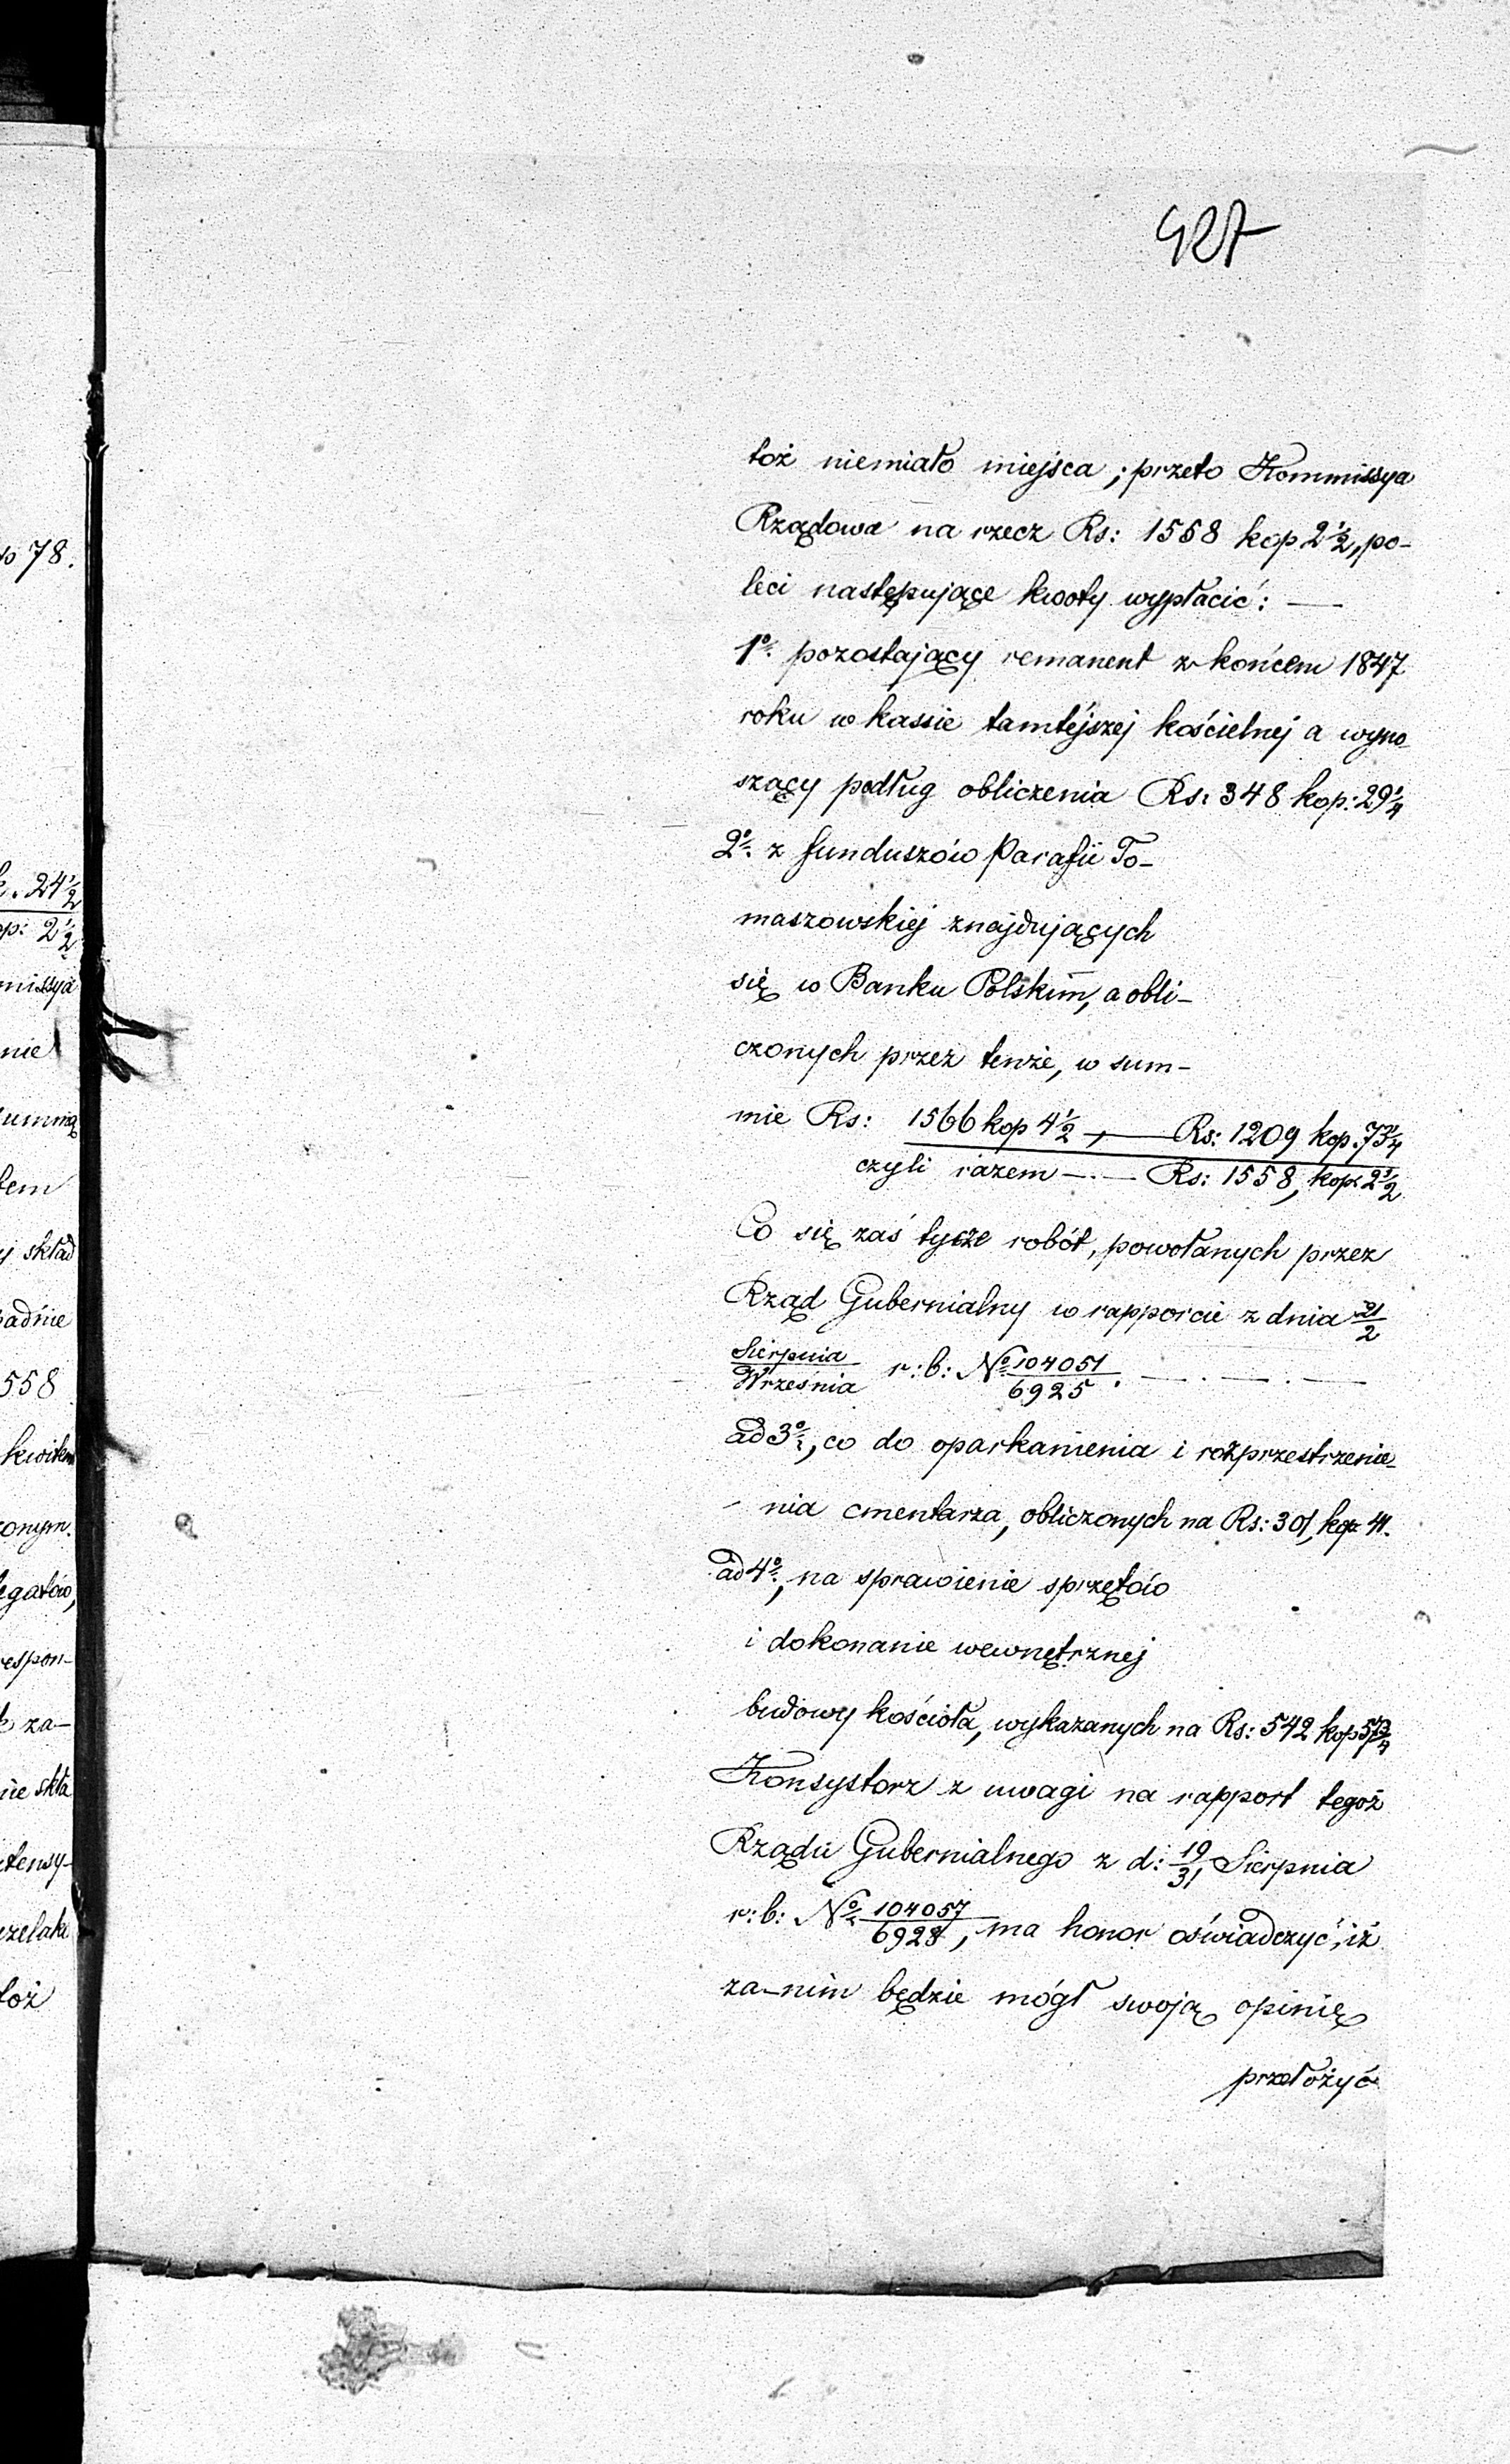 427
toż niemiało miejsca, przeto Kommissya
Rządowa na rzecz Rs: 1558 kop 2½, po-
leci następujące kwoty wypłacić: —
1º pozostający remanent z końcem 1847
roku w kassie tamtéjszej kościelnej a wyno-
szący podług obliczenia Rs: 348 kop: 29¼
2º z funduszów Parafii To-
maszowskiej znajdujących
się w Banku Polskim, a obli-
czonych przez tenże, w sum-
mie Rs: 1566 kop 4½, — Rs: 1209 kop. 73¼
czyli razem — . — Rs: 1558, kop: 2½
Co się zaś tycze robót, powołanych przez
Rząd Gubernialny w rapporcie z dnia 21/2
Sierpnia/Września r: b: Nº 104051/6925. — . — . —
ad 3º, co do oparkanienia i rozprzestrzenie-
nia cmentarza, obliczonych na Rs: 301, kop 41.
ad 4º, na sprawienie sprzętów
i dokonanie wewnętrznej
budowy kościoła, wykazanych na Rs: 542 kop 57¾
Konsystorz z uwagi na rapport tegoż
Rządu Gubernialnego z d: 19/31 Sierpnia
r: b: Nº 104057/6928, ma honor oświadczyć, iż
za-nim będzie mógł swoją opinię
przełożyć
78.
k. 24½
op: 2½
missya
nie
summą
tem
y skład
padnie
558
kwitem
conym.
legatów,
respon-
k za-
nie skła
tensy-
zelaki
toż